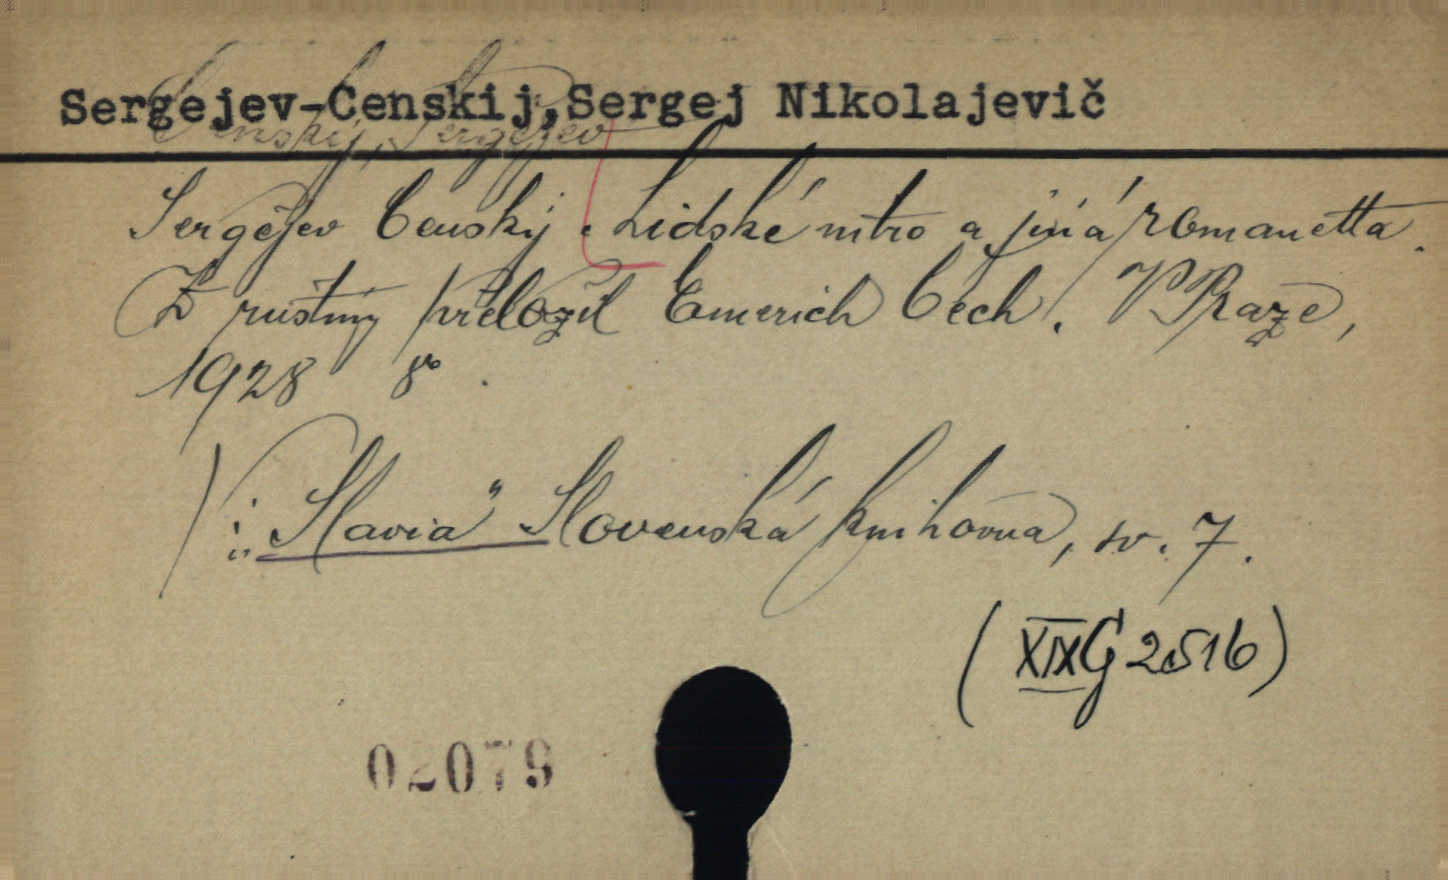 Sergejev-Censkij,Sergej Nikolajevič
Censky, Sergejev
Sergějev Censky. Lidské nitro a jiná romanetta.
Z ruštiny přeložil Emerich Čech. V Praze,
1928 8°.
): „Slavia" Slovenská knihovna, sv. 7.
(XIX G 2516)
02079